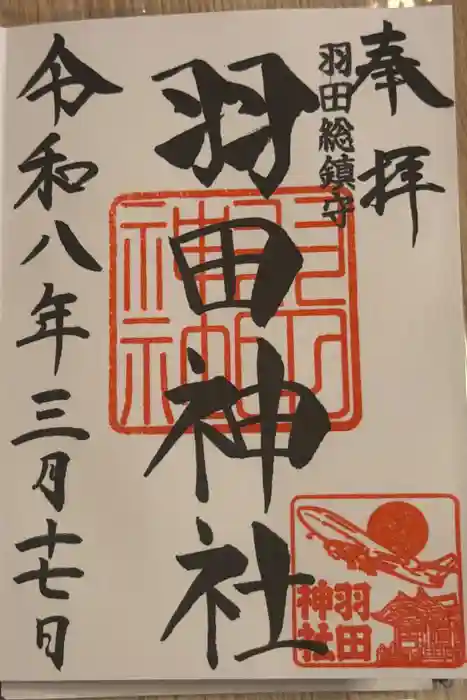 奉拝
羽田総鎮守
羽田神社
令和八年三月十七日
羽田
神社
羽田
神社